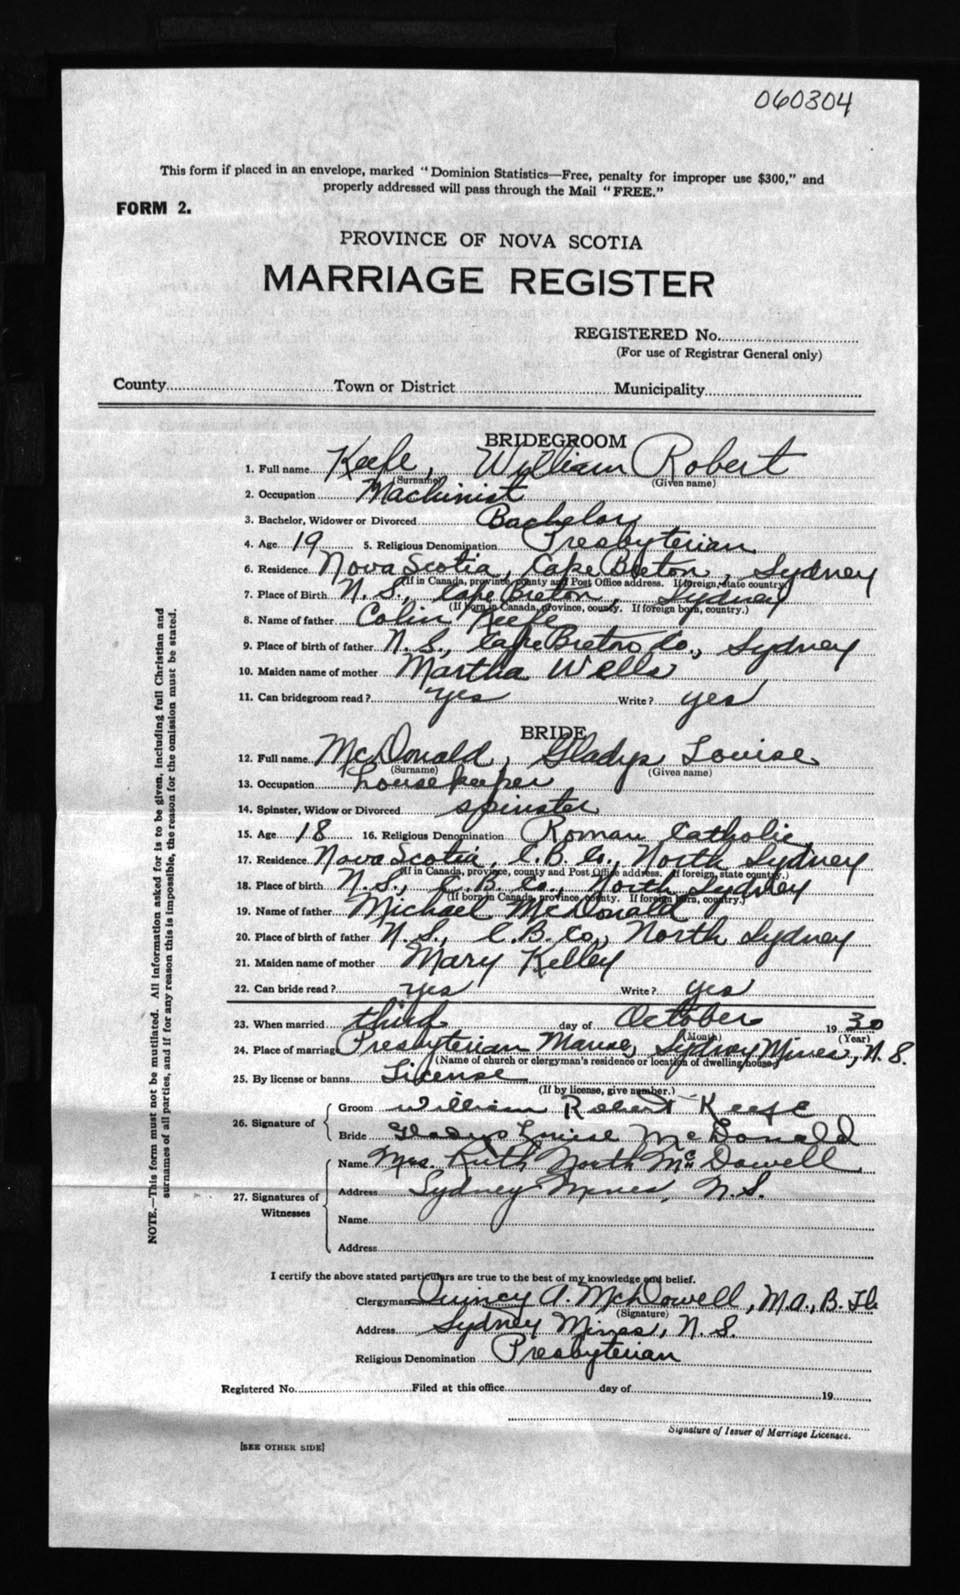 060304
This form if placed in an envelope, marked "Dominion Statistics—Free, penalty for improper use $300," and
properly addressed will pass through the Mail "FREE."
FORM 2.
PROVINCE OF NOVA SCOTIA
MARRIAGE REGISTER
REGISTERED No.
(For use of Registrar General only)
County Town or District Municipality
BRIDEGROOM
1. Full name Keefe, William Robert
(Surname) (Given name)
2. Occupation Machinist
3. Bachelor, Widower or Divorced Bachelor
4. Age 19 5. Religious Denomination Presbyterian
6. Residence Nova Scotia, Cape Breton, Sydney
(If in Canada, province, county and Post Office address. If foreign, state country.)
7. Place of Birth N.S., Cape Breton, Sydney
(If born in Canada, province, county. If foreign born, country.)
8. Name of father Colin Keefe
9. Place of birth of father N.S., Cape Breton Co., Sydney
10. Maiden name of mother Martha Wells
11. Can bridegroom read? yes Write? yes
BRIDE
12. Full name McDonald, Gladys Louise
(Surname) (Given name)
13. Occupation housekeeper
14. Spinster, Widow or Divorced spinster
15. Age 18 16. Religious Denomination Roman Catholic
17. Residence Nova Scotia, C.B. Co., North Sydney
(If in Canada, province, county and Post Office address. If foreign, state country.)
18. Place of birth N.S., C.B. Co., North Sydney
(If born in Canada, province, county. If foreign born, country.)
19. Name of father Michael McDonald
20. Place of birth of father N.S., C.B. Co., North Sydney
21. Maiden name of mother Mary Kelley
22. Can bride read? yes Write? yes
23. When married third day of October 1930
(Month) (Year)
24. Place of marriage Presbyterian Manse, Sydney Mines, N.S.
(Name of church or clergyman's residence or location of dwelling house)
25. By license or banns License
(If by license, give number.)
26. Signature of Groom William Robert Keefe
Bride Gladys Louise McDonald
27. Signatures of Witnesses Name Mrs. Ruth North McDowell
Address Sydney Mines, N.S.
Name
Address
I certify the above stated particulars are true to the best of my knowledge and belief.
Clergyman Quincy A. McDowell, M.A., B.Th.
(Signature)
Address Sydney Mines, N.S.
Religious Denomination Presbyterian
Registered No. Filed at this office day of 19
Signature of Issuer of Marriage Licenses.
[SEE OTHER SIDE]
NOTE.—This form must not be mutilated. All information asked for is to be given, including full Christian and
surnames of all parties, and if for any reason this is impossible, the reason for the omission must be stated.